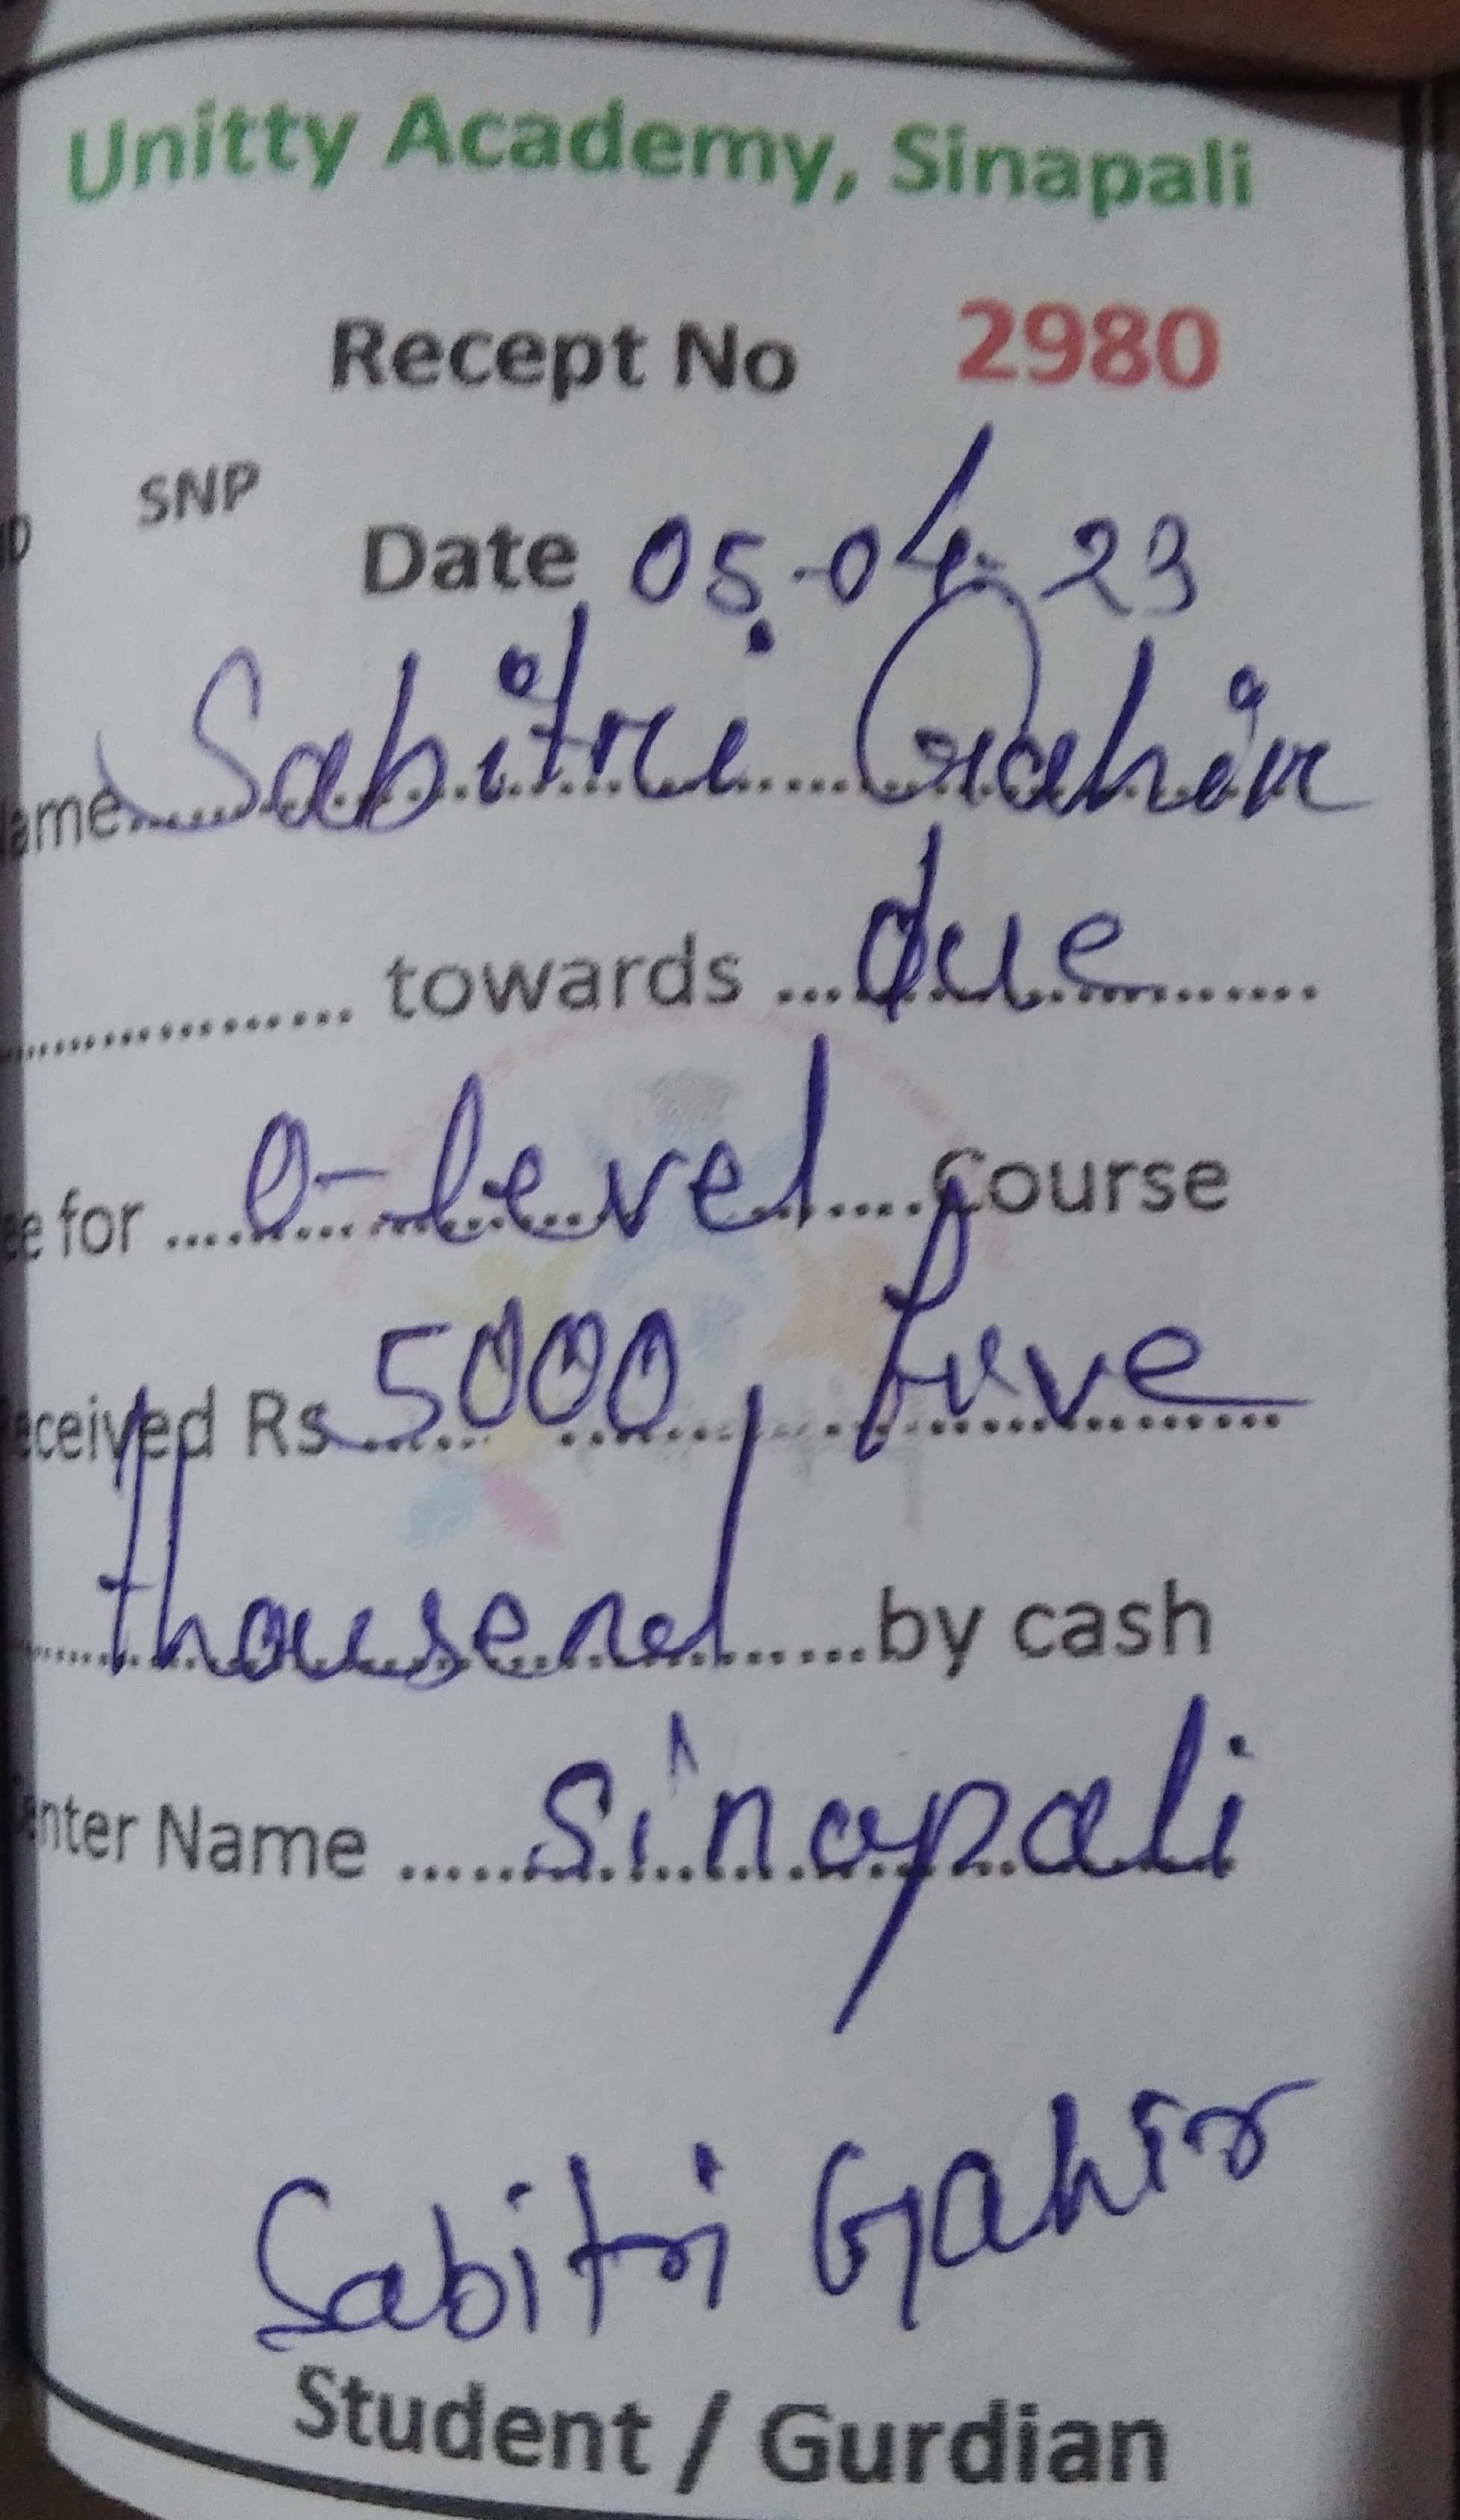 Unitty Academy, Sinapali
Recept No 2980
SNP
Date 05-04-23
ame Sabitri Gahir
towards due
ee for O-level Course
eceived Rs 5000, five
thousend by cash
enter Name Sinapali
Sabitri Gahir
Student / Gurdian